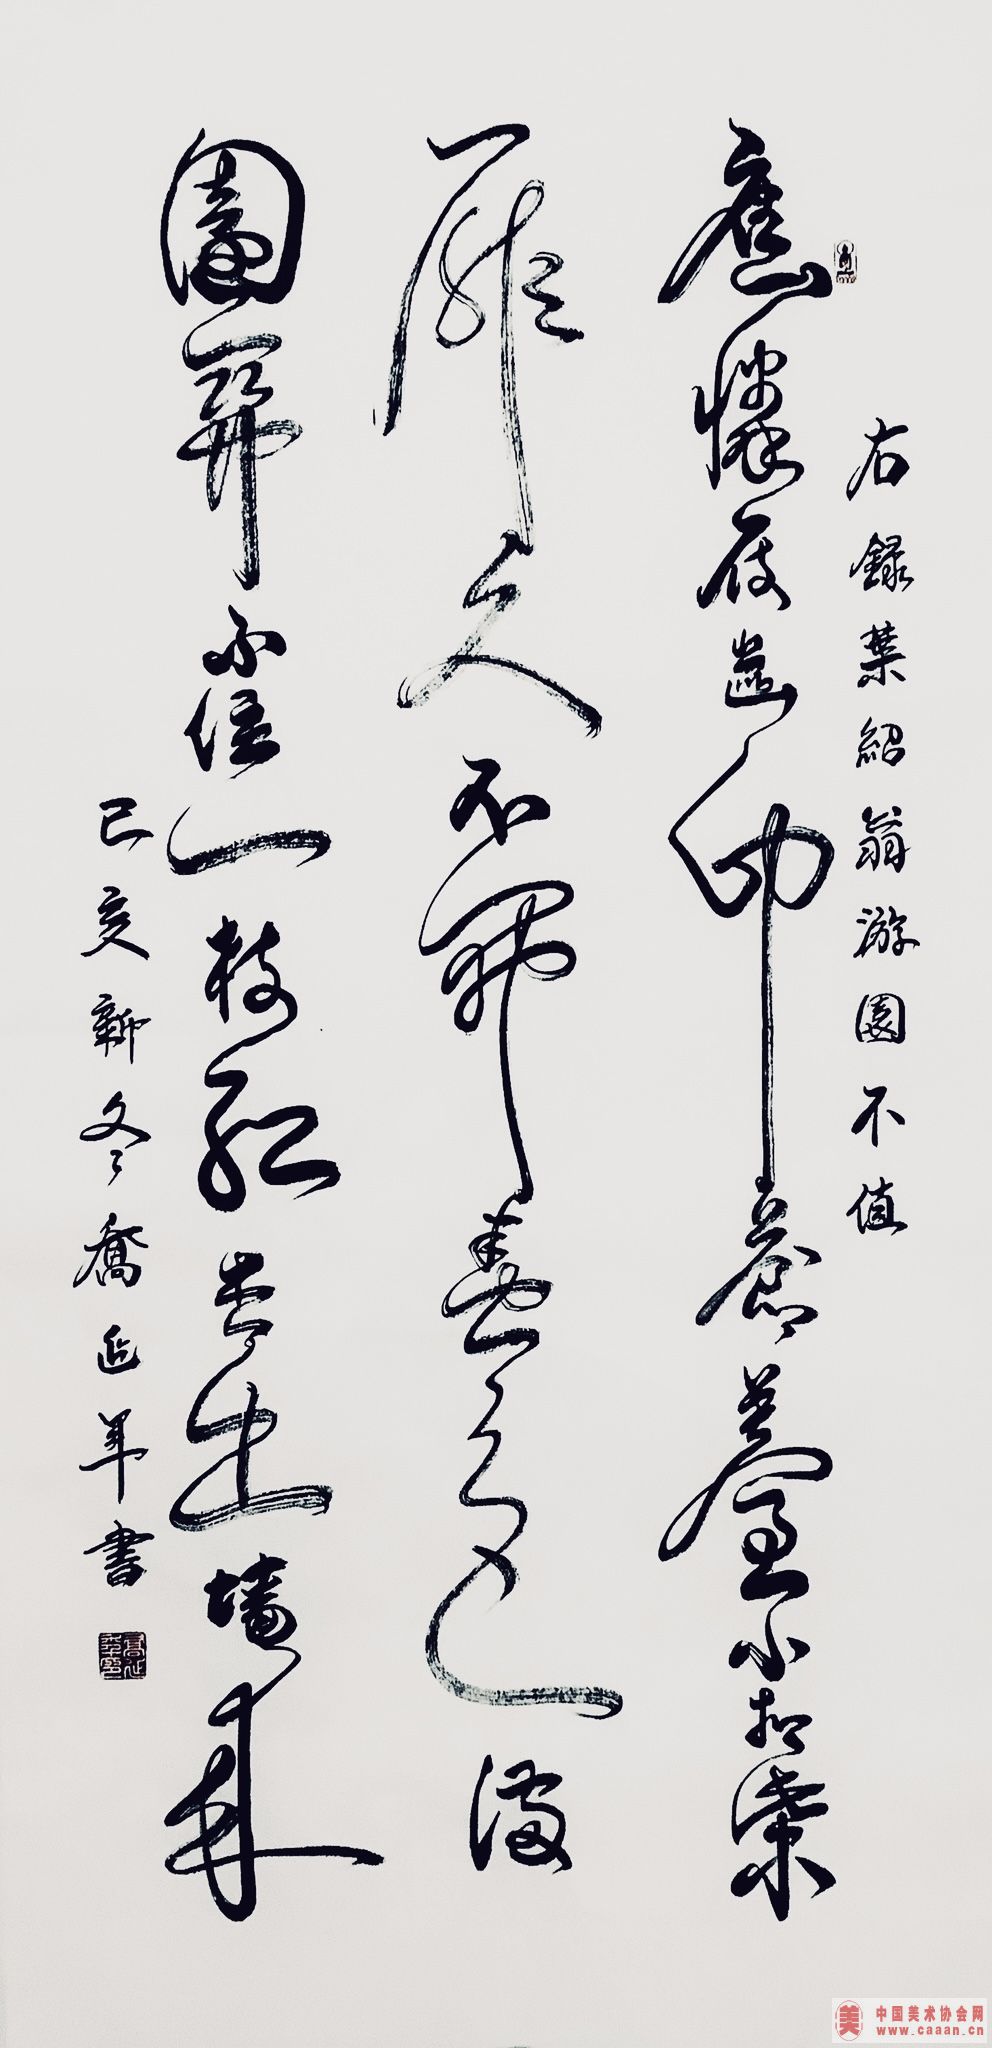 右錄葉紹翁游園不值
應憐屐齒印蒼薹小扣柴
扉久不開春色滿
園關不住一枝紅杏出墻來
己亥新冬喬延年書
中国美术协会网
www.caaan.cn
美